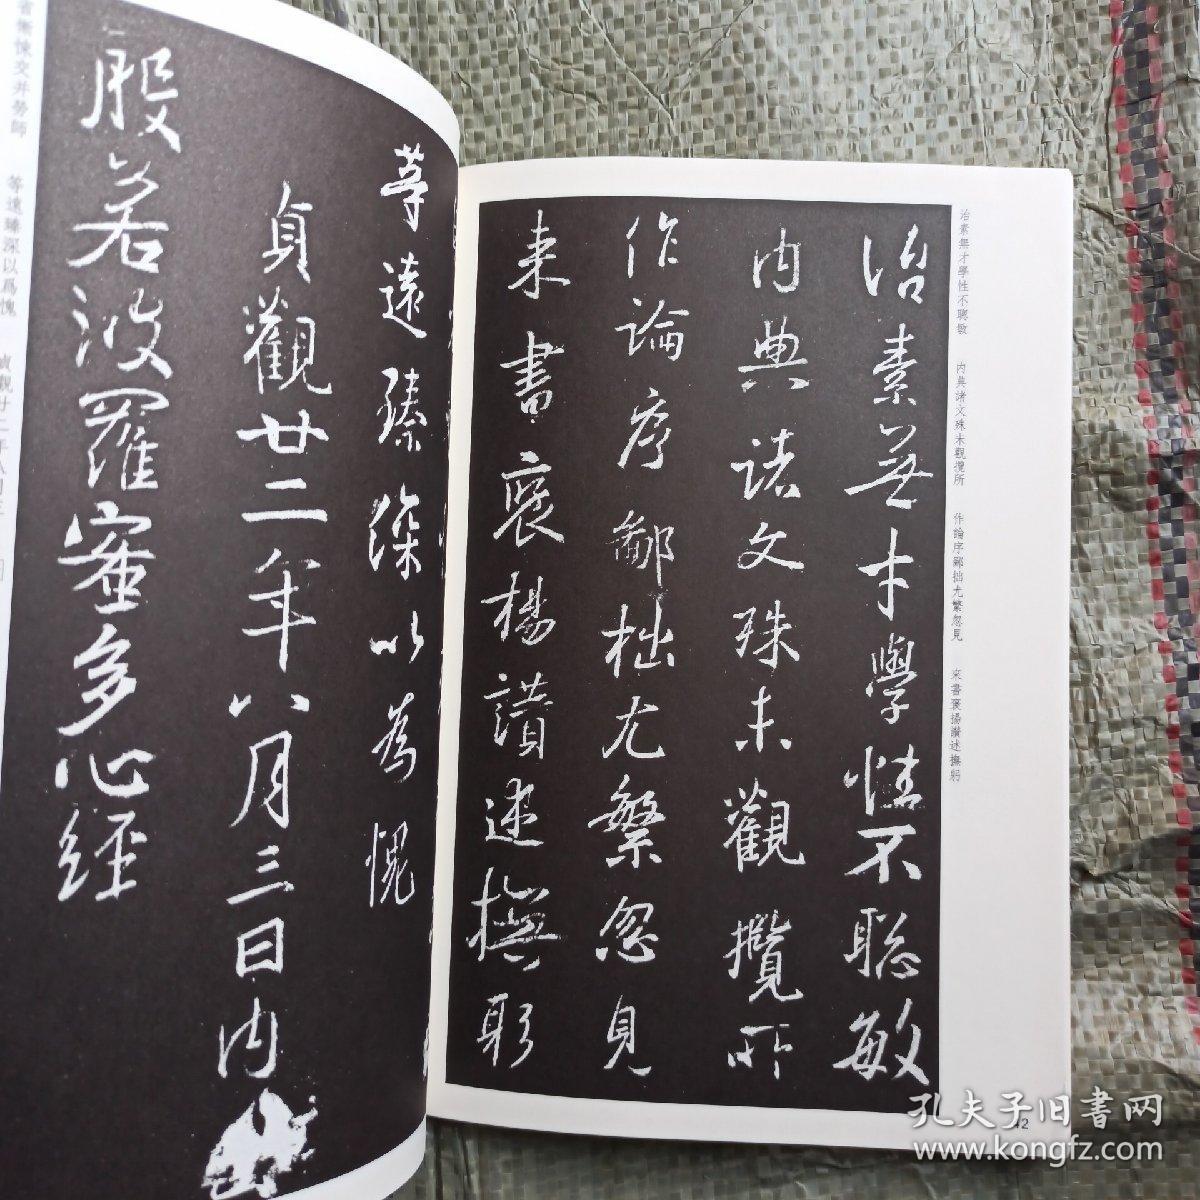 治素無才學性不聡敏
内典諸文殊未觀攬所
作論序鄙拙尤繁忽見
来書褒揚讃述撫躬
治素無才學性不聰敏
内典諸文殊未觀攬所
作論序鄙拙尤繁忽見
來書褒揚讃述撫躬
42
等遠臻深以為愧
貞觀廿二年八月三日内
般若波羅蜜多心經
省慚悚交并勞師
等遠臻深以爲愧
貞觀廿二年八月三
孔夫子旧書网
www.kongfz.com